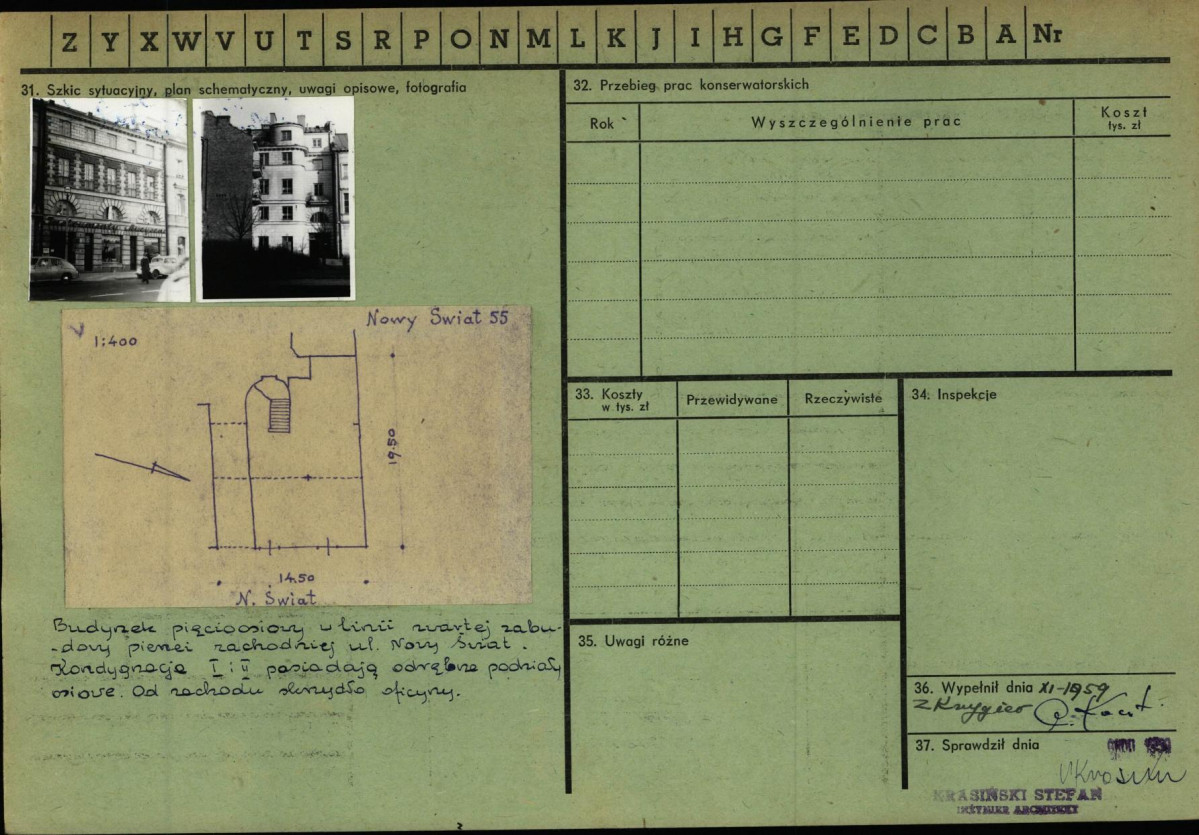 Z Y X W V U T S R P O N M L K J I H G F E D C B A Nr
31. Szkic sytuacyjny, plan schematyczny, uwagi opisowe, fotografia
1:400
Nowy Świat 55
19.50
14.50
N. Świat
Budynek pięcioosiowy w linii zwartej zabu-
-dowy pierzei zachodniej ul. Nowy Świat.
Kondygnacje I i II posiadają odrębne podziały
osiowe. Od zachodu skrzydło oficyny.
32. Przebieg prac konserwatorskich
Rok
Wyszczególnienie prac
Koszt
tys. zł
33. Koszty
w tys. zł
Przewidywane
Rzeczywiste
34. Inspekcje
35. Uwagi różne
36. Wypełnił dnia XI-1959
37. Sprawdził dnia
KRASIŃSKI STEFAN
INŻYNIER ARCHITEKT